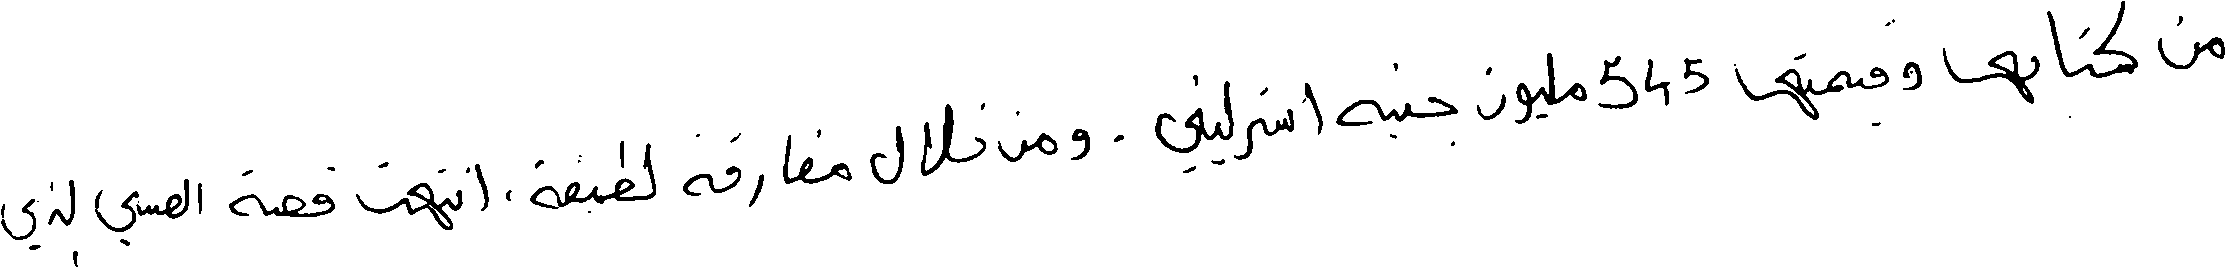 من كتابها وقيمتها 545 مليون جنيه استرليني. ومن خلال مفارقة لطيفة، انتهت قصة الصبي الذي